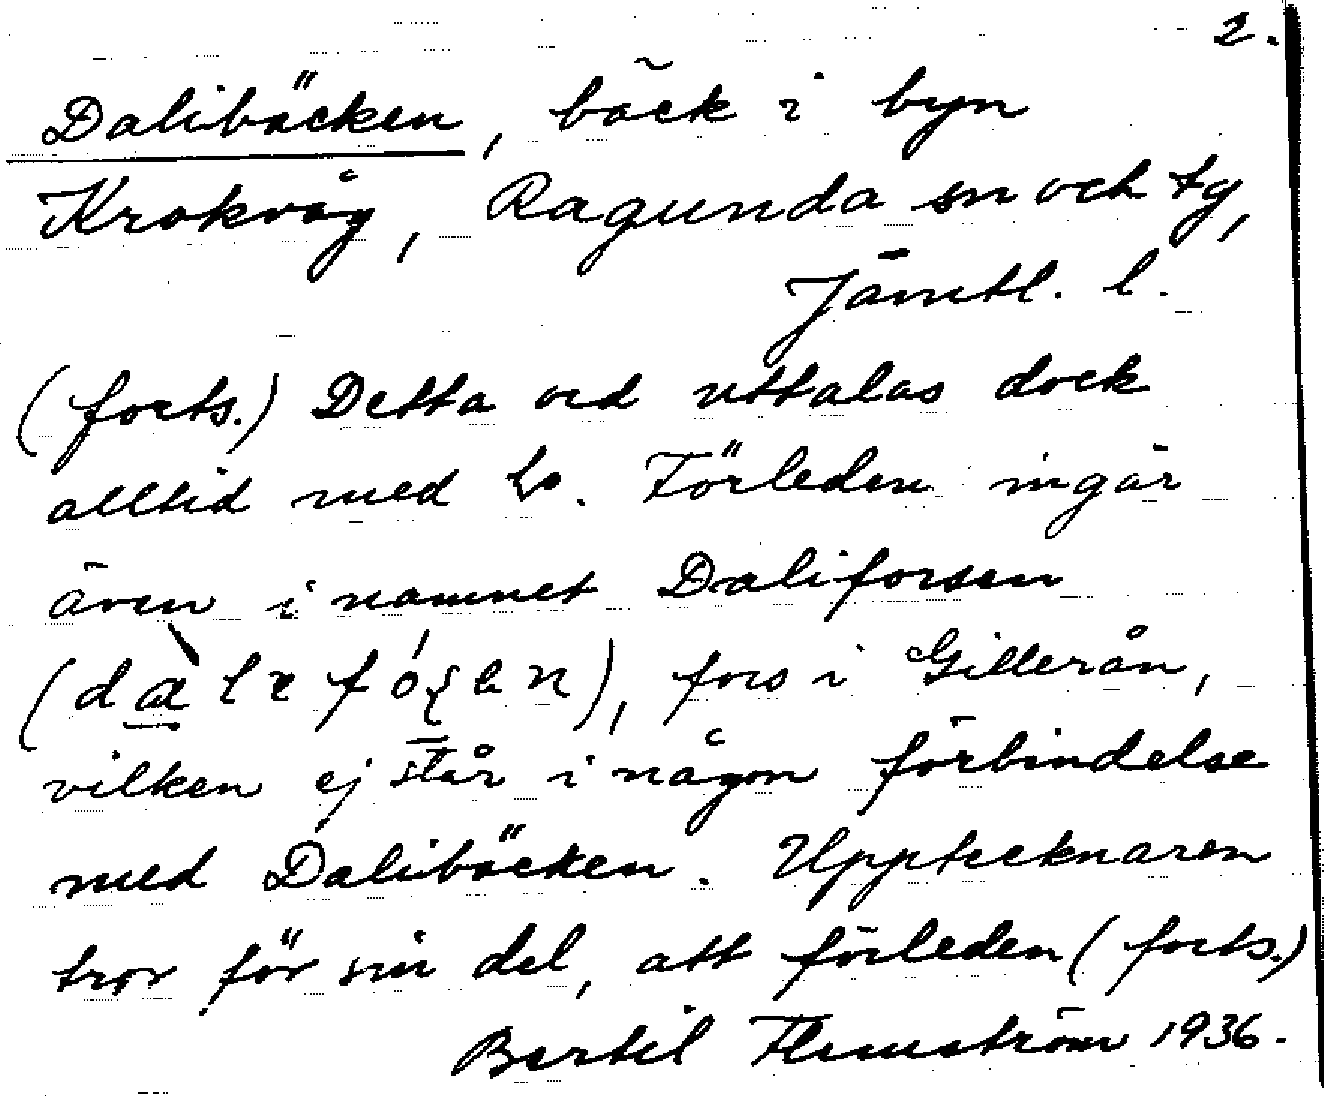 2.
Dalibäcken, bäck i byn
Krokvåg, Ragunda sn och tg,
Jämtl. l.
(forts.) Detta ord uttalas dock
alltid med . Förleden ingår
även i namnet Daliforsen
fors i Gillerån,
vilken ej står i någon förbindelse
med Dalibäcken. Upptecknaren
tror för sin del, att förleden (forts.)
Bertil Flemström 1936.